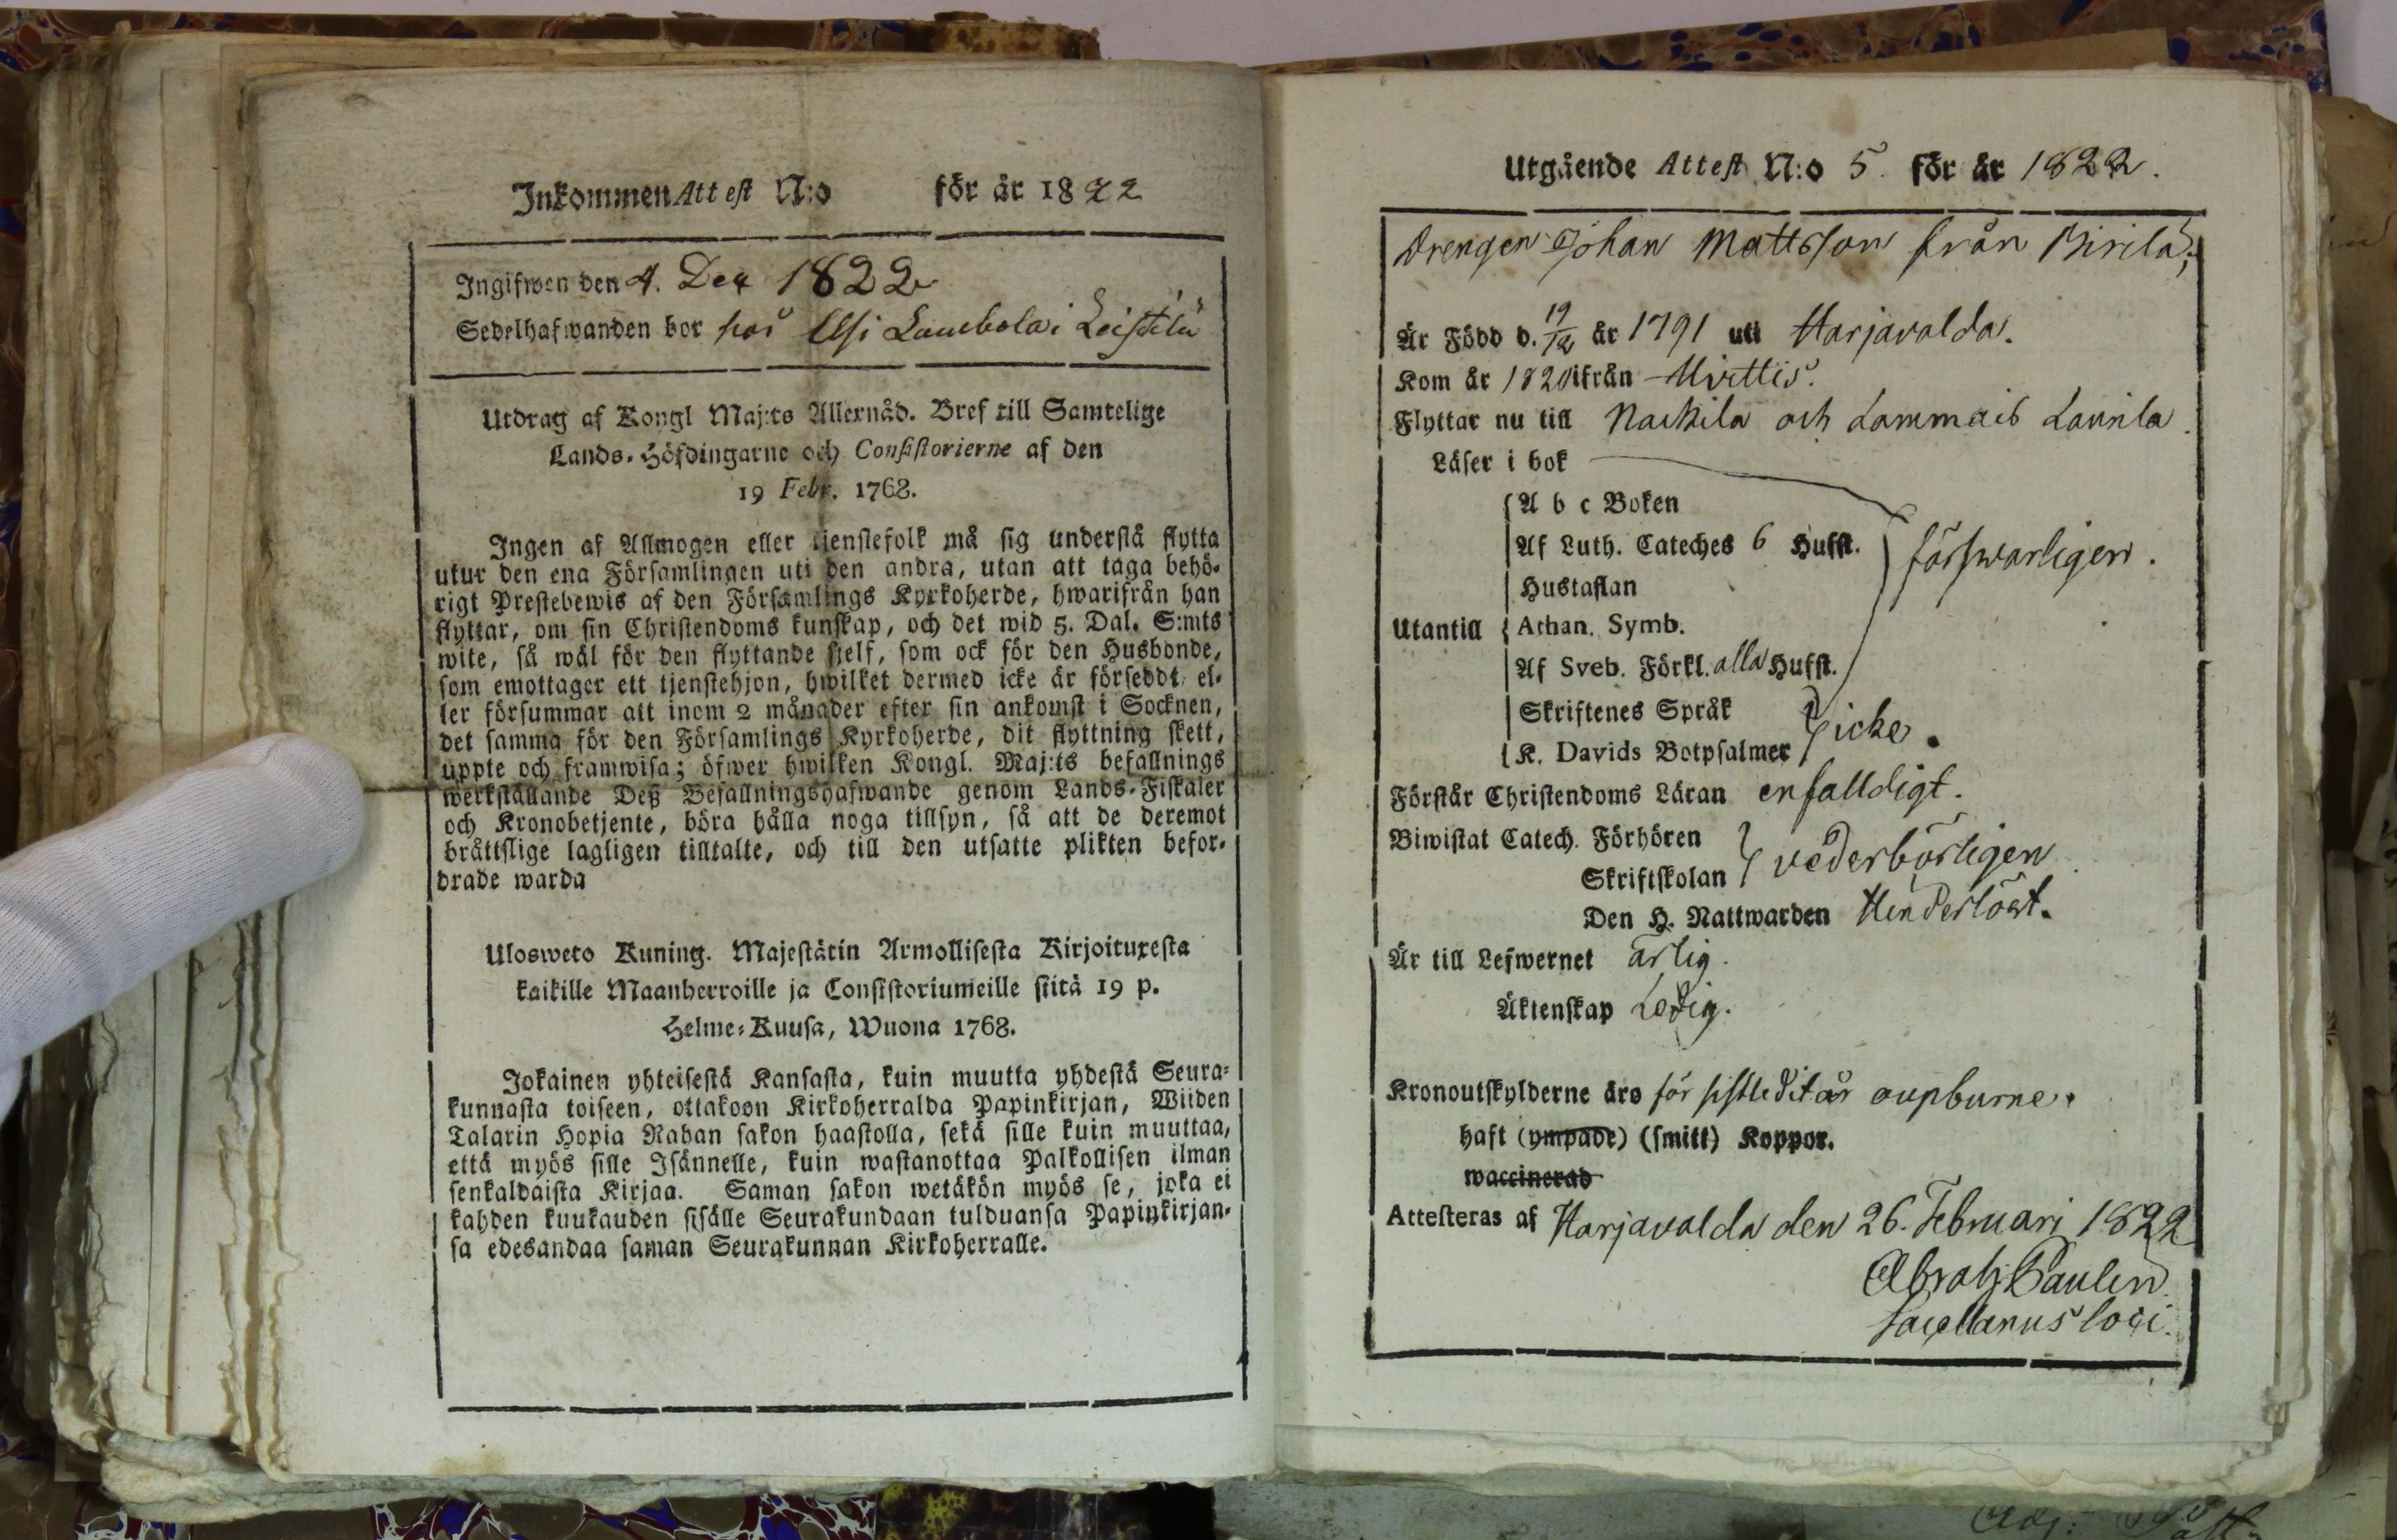 Inkommen Attest N:o för år 1822
Ingifwen den 4. Dec 1822
Sedelhafwanden bor hos i Leistilä
Utdrag af Kongl Maj:ts Allernåd. Bref till Samtelige
Lands-Höfdingarne och Consistorierne af den
19 Febr. 1768.
Ingen af Allmogen eller tjenstefolk må sig understå flytta
utur den ena Församlingen uti den andra, utan att taga behö-
rigt Prestebewis af den Församlings Kyrkoherde, hwarifrån han
flyttar, om sin Christendoms kunskap, och det wid 5. Dal. S:mts
wite, så wäl för den flyttande sjelf, som ock för den Husbonde,
som emottager ett tjenstehjon, hwilket dermed icke är försedt, el-
ler försummar att inom 2 månader efter sin ankomst i Socknen,
det samma för den Församlings Kyrkoherde, dit flyttning skett,
uppte och framwisa; öfwer hwilken Kongl. Maj:ts befallnings
werkställande Deß Befallningshafwande genom Lands-Fiskaler
och Kronobetjente, böra hålla noga tillsyn, så att de deremot
bråttslige lagligen tilltalte, och till den utsatte plikten befor-
drade warda
Ulosweto Kuning. Majestätin Armollisesta Kirjoituxesta
kaikille Maanherroille ja Consistoriumeille siitä 19 p.
Helme-Kuusa, Wuona 1768.
Jokainen yhteisestä Kansasta, kuin muutta yhdestä Seura-
kunnasta toiseen, ottakoon Kirkoherralda Papinkirjan, Wiiden
Talarin Hopia Rahan sakon haastolla, sekä sille kuin muuttaa,
että myös sille Isännelle, kuin wastanottaa Palkollisen ilman
senkaldaista Kirjaa. Saman sakon wetäkön myös se, joka ei
kahden kuukauden sisälle Seurakundaan tulduansa Papinkirjan-
sa edesandaa saman Seurakunnan Kirkoherralle.
Utgående Attest N:o 5. för år 1822.
Drengen Johan Mattsson från Pirilä,
Är Född d. 19/12 år 1791 uti Harjavalda.
Kom år 1820 ifrån Hvittis.
Flyttar nu till Nackila och Lammais Laurila.
Läser i bok
A b c Boken
Af Luth. Cateches 6 Hufst. försvarligen.
Hustaflan
Utantill Athan. Symb.
Af Sveb. Förkl. alla Hufst.
Skriftenes Språk
K. Davids Botpsalmer icke.
Förstår Christendoms Läran enfalldigt.
Biwistat Catech. Förhören
Skriftskolan vederbörligen
Den H. Nattwarden Hinderlöst.
Är till Lefwernet ärlig.
Äktenskap Ledig.
Kronoutskylderne äro för sistledit år oupburne.
haft (ympade) (smitt) Koppor.
waccinerad
Attesteras af Harjavalda den 26. Februari 1822
Abrah. Paulin
Sacellanus loci.